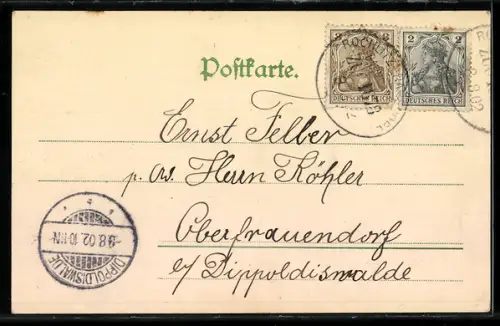 Postkarte.
3 3
DEUTSCHES REICH
2 2
DEUTSCHES REICH
8.8.02
Ernst Felber
p. ad. Herrn Köhler
Oberfrauendorf
b/ Dippoldiswalde
DIPPOLDISWALDE
-9.8.02. 10-11N